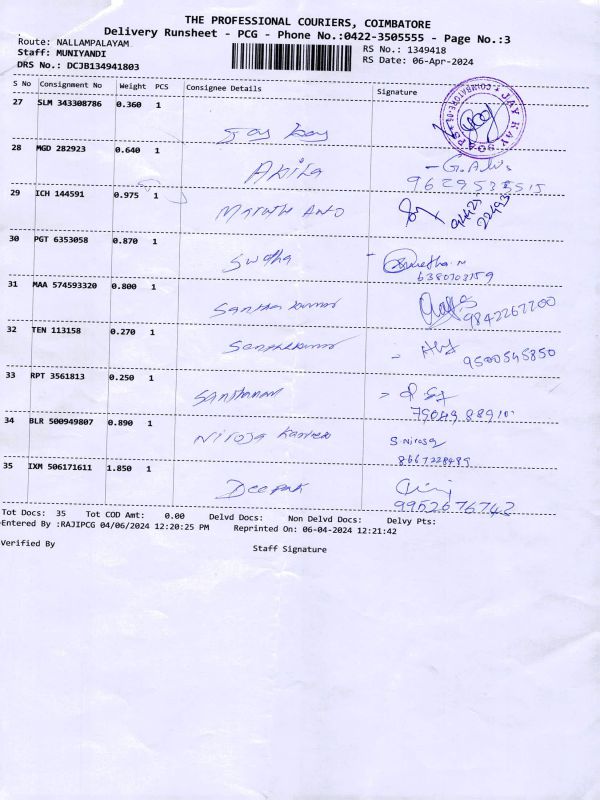 THE PROFESSIONAL COURIERS, COIMBATORE
Delivery Runsheet - PCG - Phone No.:0422-3505555 - Page No.:3
Route: NALLAMPALAYAM
Staff: MUNIYANDI
DRS No.: DCJB134941803
RS No.: 1349418
RS Date: 06-Apr-2024
S No Consignment No Weight PCS Consignee Details Signature
27 SLM 343308786 0.360 1
JAY KAY
28 MGD 282923 0.640 1
Akila
9629533515
29 ICH 144591 0.975 1
94425
22493
30 PGT 6353058 0.870 1
Swetha
6380703159
31 MAA 574593320 0.800 1
Santha kumar
9842267200
32 TEN 113158 0.270 1
9500545850
33 RPT 3561813 0.250 1
Santhanam
34 BLR 500949807 0.890 1
Niroja
S. Niroja
8667228489
35 IXM 506171611 1.850 1
Deepak
9952676742
Tot Docs: 35 Tot COD Amt: 0.00 Delvd Docs: Non Delvd Docs: Delvy Pts:
Entered By :RAJIPCG 04/06/2024 12:20:25 PM Reprinted On: 06-04-2024 12:21:42
Verified By
Staff Signature